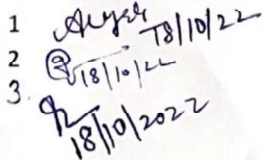 1 18/10/22
2 18/10/22
3. 18/10/2022